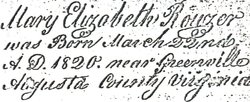 Mary Elizabeth Rowzer
was Born March 22nd
A.D. 1820. near Greenville
Augusta County Virginia